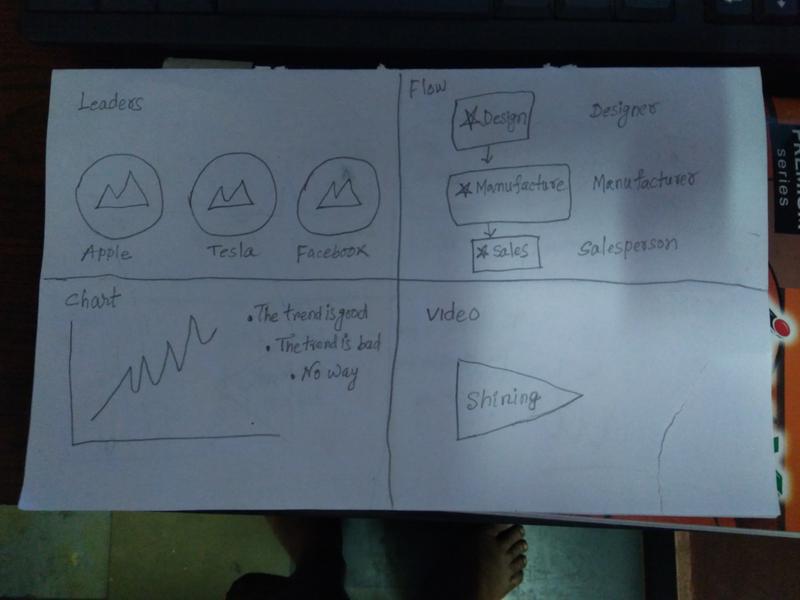 Leaders
Apple Tesla Facebook
Flow
Design Designer
Manufacture Manufacturer
Sales Salesperson
Chart
• The trend is good
• The trend is bad
• No way
Video
Shining
series